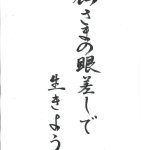 さまの眼差しで
生きよう